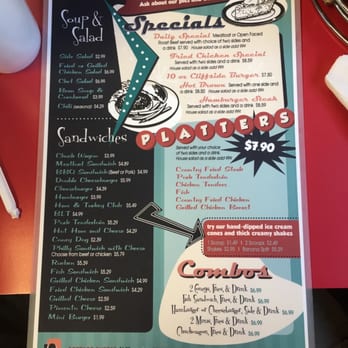 Ask about our pies and
Soup & Salad
Side Salad $2.99
Fried or Grilled
Chicken Salad $6.99
Chef Salad $6.99
Bean Soup &
Cornbread $3.99
Chili (seasonal) $4.29
Specials
Daily Special Meatloaf or Open Faced
Roast Beef served with choice of two sides and
a drink $7.90 House salad as a side add 99¢
Fried Chicken Special
Served with two sides and a drink $8.59
House salad as a side add 99¢
10 oz Cliffside Burger $7.30
Hot Brown Served with one side and a drink
$8.30 House salad as a side add 99¢
Hamburger Steak
Served with choice of two sides and a drink $8.59
House salad as a side add 99¢
Sandwiches
Chuck Wagon $3.99
Meatloaf Sandwich $4.89
BBQ Sandwich (Beef or Pork) $4.90
Double Cheeseburger $5.99
Cheeseburger $4.29
Hamburger $3.99
Ham & Turkey Club $5.49
BLT $4.99
Pork Tenderloin $5.29
Hot Ham and Cheese $4.29
Coney Dog $2.39
Philly Sandwich with Cheese
Choose from beef or chicken $5.79
Reuben $5.39
Fish Sandwich $5.29
Grilled Chicken Sandwich $4.99
Fried Chicken Sandwich $4.99
Grilled Cheese $2.59
Pimento Cheese $2.99
Mini Burger $1.99
PLATTERS
$7.90
Served with your choice
of two sides and a drink.
House salad as a side add 99¢
Country Fried Steak
Pork Tenderloin
Chicken Tenders
Fish
Country Fried Chicken
Grilled Chicken Breast
try our hand-dipped ice cream
cones and thick creamy shakes
1 Scoop $1.49 | 2 Scoops $2.49
Shakes $2.99 | Banana Split $5.29
Combos
2 Coneys, Fries, & Drink $6.99
Fish Sandwich, Fries, & Drink $6.99
Hamburger or Cheeseburger, Side & Drink $6.99
2 Minis, Fries, & Drink $6.99
Chuckwagon, Fries, & Drink $6.99